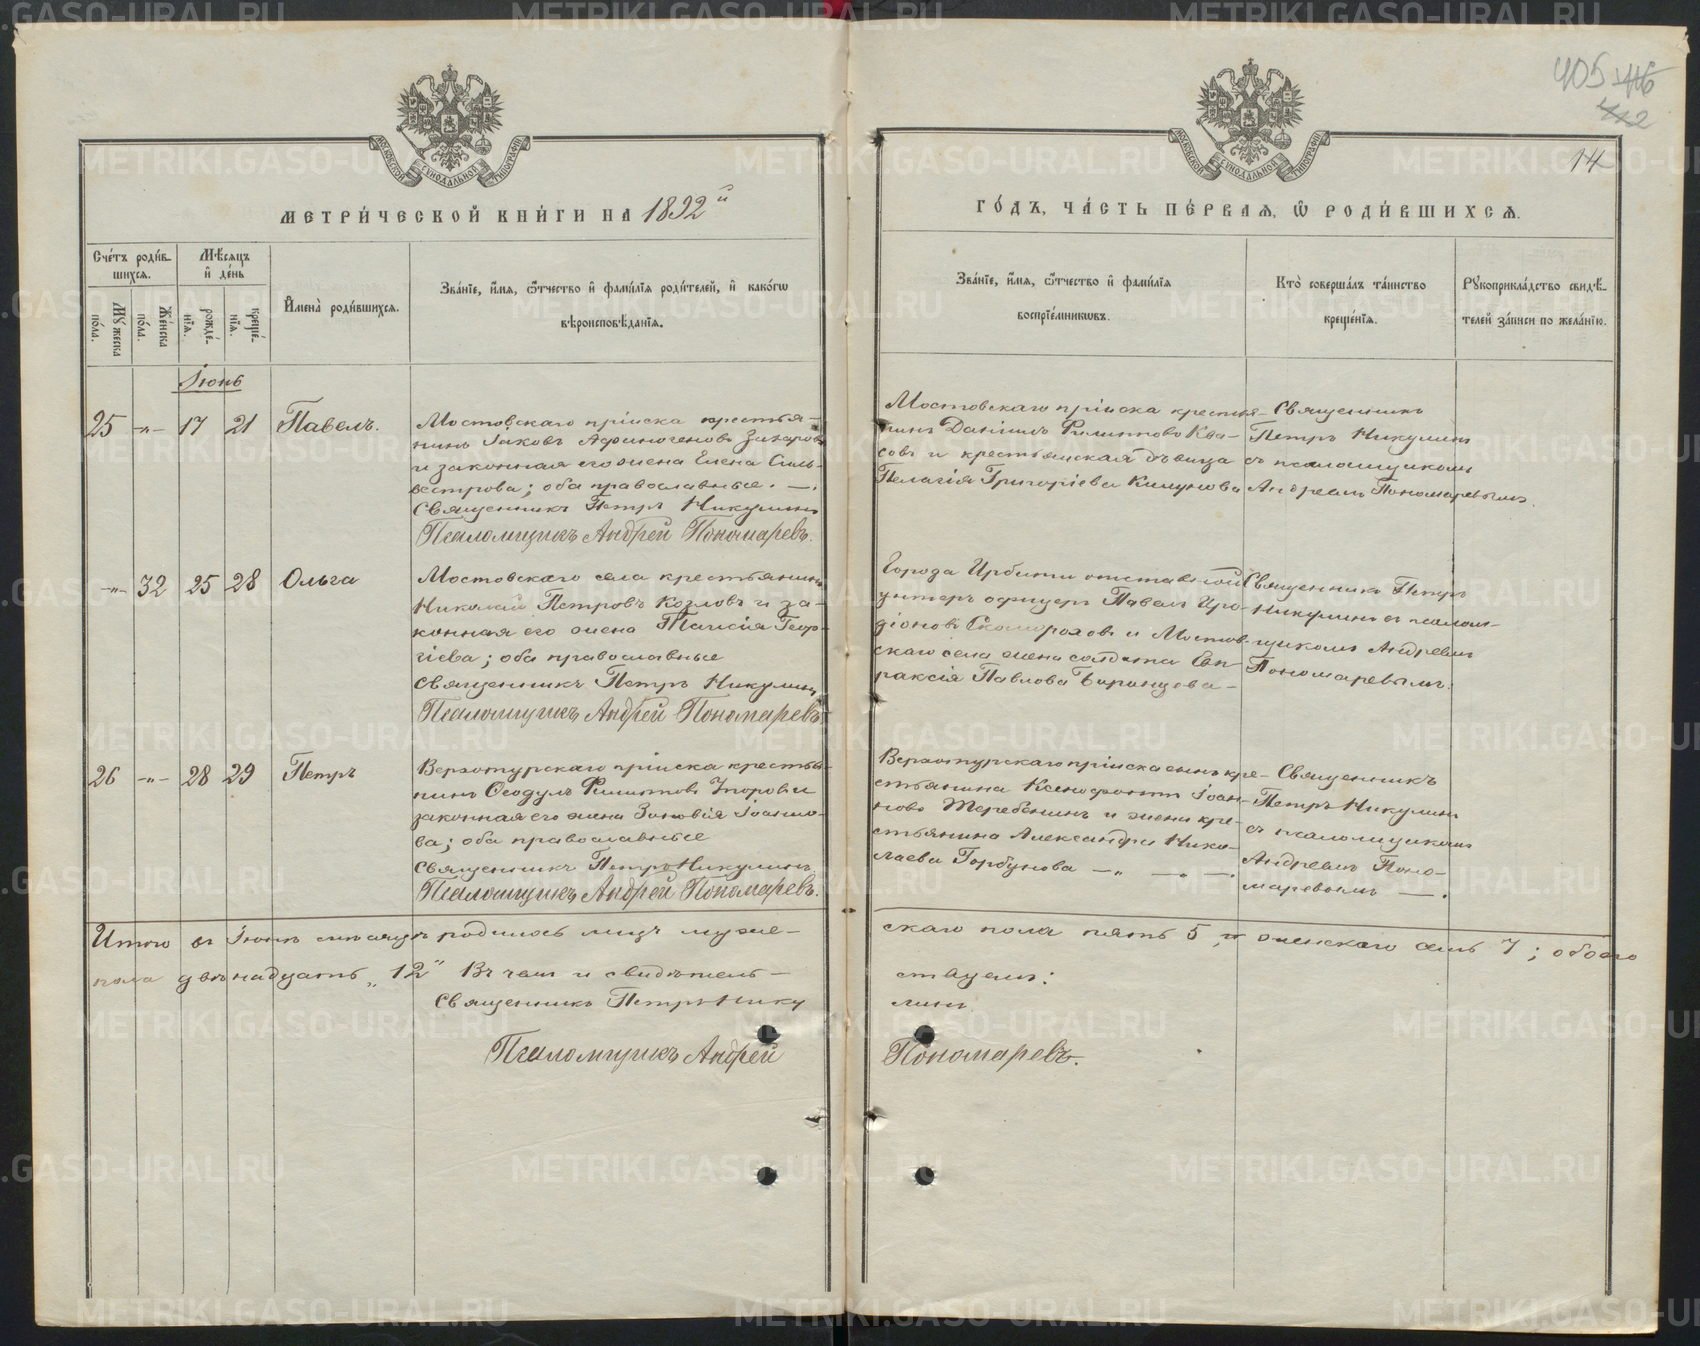 405 116
442
14
МОСКОВСКОЙ СѴНОДАЛЬНОЙ ТИПОГРАФІИ
МОСКОВСКОЙ СѴНОДАЛЬНОЙ ТИПОГРАФІИ
МЕТРИ́ЧЕСКОЙ КНИ́ГИ НА 1892й
ГО́ДЪ, ЧА́СТЬ ПЕ́РВАЯ, Ѿ РОДИ́ВШИХСЯ.
Сче́тъ роди́в-
шихся.
Мꙋжеска по́ла.
Же́нска по́ла.
Мѣ́сяцъ
и҆ де́нь
рожде́-нїѧ.
креще́-нїѧ.
И҆мена̀ роди́вшихся.
Зва́нїе, и҆́мѧ, ѻ҆́тчество и҆ фамѝлїѧ роди́телей, и҆ како́гѡ
вѣроисповѣ́данїѧ.
Зва́нїе, и҆́мѧ, ѻ҆́тчество и҆ фамѝлїѧ
воспрїе́мникѡвъ.
Кто̀ соверша́лъ та́инство
креще́нїѧ.
Рꙋкоприкла́дство свидѣ́-
телей за́писи по жела́нїю.
Іюнь
25 -"- 17 21 Павелъ.
Мостовскаго пріиска крестья-
нинъ Іаковъ Афиногеновъ Захаровъ
и законная его жена Елена Силь-
вестрова; оба православные. —.
Священникъ Петръ Никулинъ
Псаломщикъ Андрей Пономаревъ.
Мостовскаго пріиска крестья-
нинъ Даніилъ Филипповъ Ква-
совъ и крестьянская дѣвица
Пелагія Григоріева
Священникъ
Петръ Никулинъ
съ псаломщикомъ
Андреемъ Пономаревымъ.
-"- 32 25 28 Ольга
Мостовскаго села крестьянинъ
Николай Петровъ Козловъ и за-
конная его жена Таисія Геор-
гіева; оба православные
Священникъ Петръ Никулинъ
Псаломщикъ Андрей Пономаревъ.
Города Ирбити отставной
унтеръ офицеръ Павелъ Иро-
діоновъ Скоморохов и Мостов-
скаго села жена солдата Евп-
раксія Павлова
Священникъ Петръ
Никулинъ съ псалом-
щикомъ Андреемъ
Пономаревымъ.
26 -"- 28 29 Петръ
Верхотурскаго пріиска крестья-
нинъ Ѳеодулъ Филипповъ и
законная его жена Зиновія Іоанно-
ва; оба православные
Священникъ Петръ Никулинъ
Псаломщикъ Андрей Пономаревъ.
Верхотурскаго пріиска сынъ кре-
стьянина Ксенофонтъ Іоан-
новъ Теребенинъ и жена кре-
стьянина Александра Нико-
лаева Горбунова —"— —"—.
Священникъ
Петръ Никулинъ
съ псаломщикомъ
Андреемъ Поно-
маревымъ —.
Итого въ Іюнѣ мѣсяцѣ родилось лицъ муже-
скаго пола пять 5, и женскаго семь 7; обоего
пола двѣнадцать „12" Въ чемъ и свидѣтель-
ствуемъ:
Священникъ Петръ Нику
линъ
Псаломщикъ Андрей
Пономаревъ.
METRIKI.GASO-URAL.RU